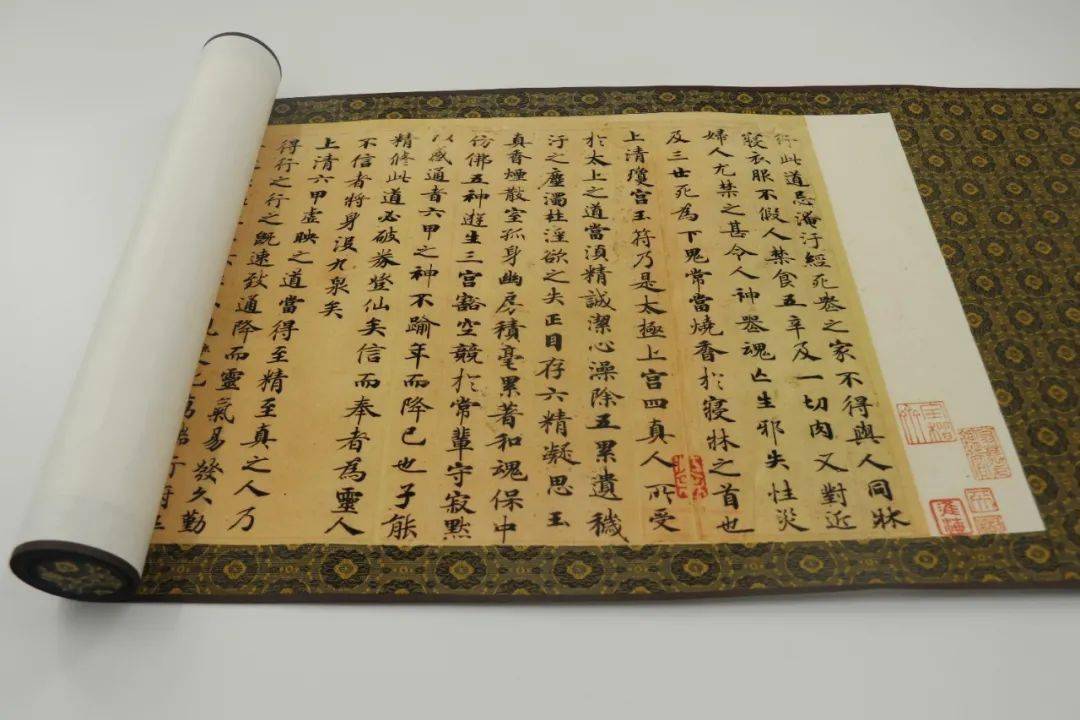 行此道忌淹汙經死喪之家不得與人同牀
寢衣服不假人禁食五辛及一切肉又對近
婦人尤禁之甚令人神喪魂亡生邪失性災
及三世死為下鬼常當燒香於寢牀之首也
上清瓊宮玉符乃是太極上宮四真人所受
於太上之道當須精誠潔心澡除五累遺穢
汙之塵濁杜淫欲之失正目存六精凝思玉
真香煙散室孤身幽房積毫累著和魂保中
仿佛五神遊生三宮豁空競於常輩守寂默
以感通者六甲之神不踰年而降已也子能
精修此道必破券登仙矣信而奉者為靈人
不信者將身沒九泉矣
上清六甲虛映之道當得至精至真之人乃
得行之行之既速致通降而靈氣易發久勤